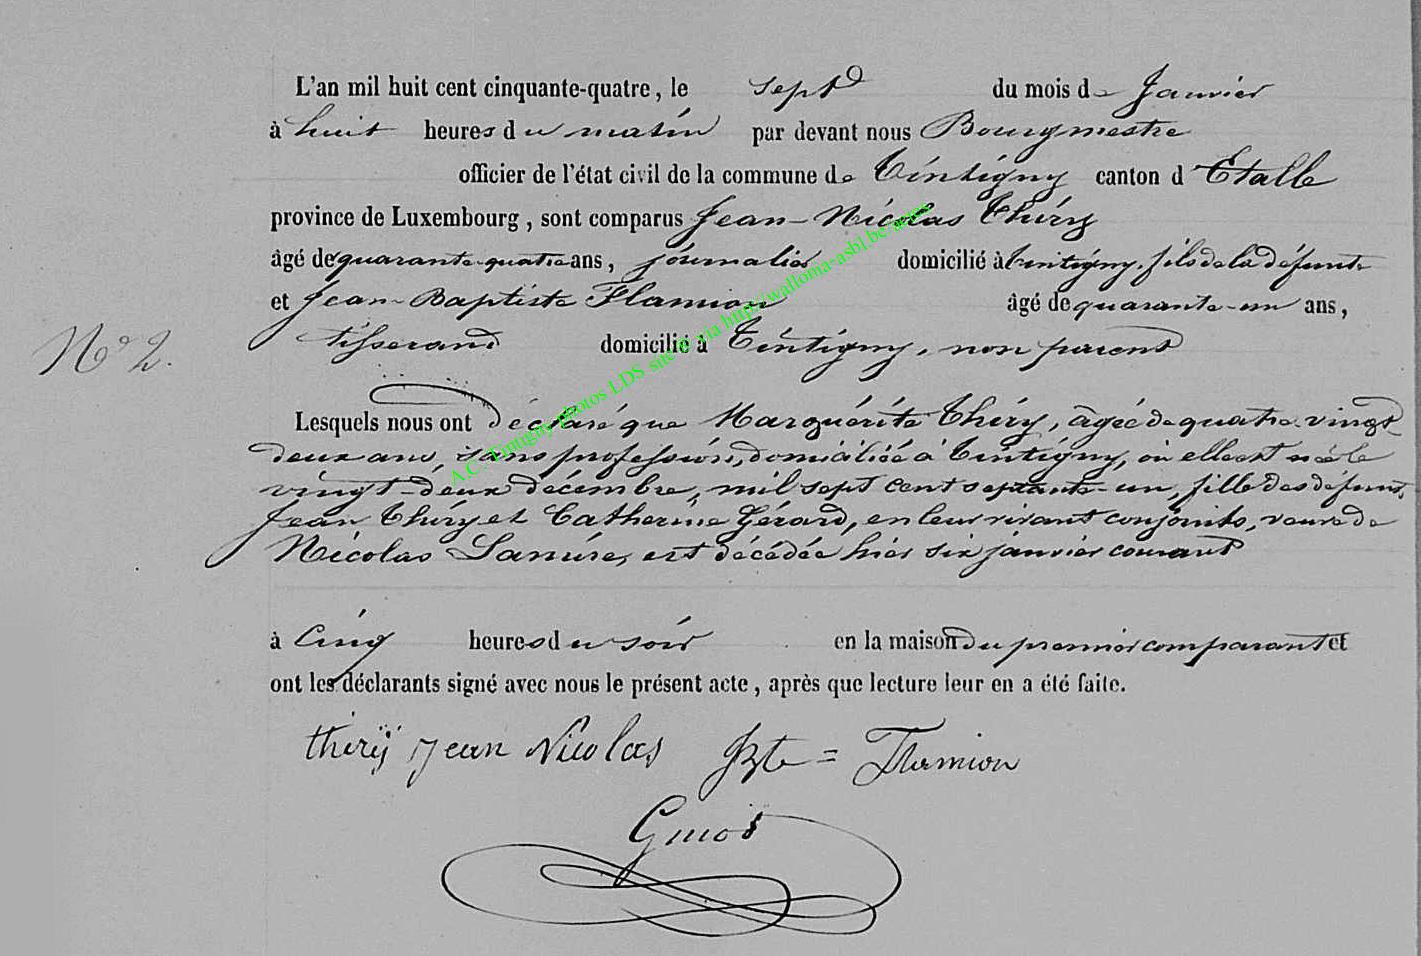 L'an mil huit cent cinquante-quatre, le sept du mois de Janvier
à huit heures du matin par devant nous Bourgmestre
officier de l'état civil de la commune de Tintigny canton d'Etalle
province de Luxembourg, sont comparus Jean-Nicolas Thiry
âgé de quarante-quatre ans, journalier domicilié à Tintigny, fils de la défunte
et Jean-Baptiste Flamion âgé de quarante-un ans,
N° 2.
tisserand domicilié à Tintigny, non parent
Lesquels nous ont déclaré que Marguérite Thiry, âgée de quatre-vingt
deux ans, sans profession, domiciliée à Tintigny, où elle est née le
vingt-deux décembre, mil sept cent septante-un, fille des défunts
Jean Thiry et Catherine Gérard, en leur vivant conjoints, veuve de
Nicolas est décédée hier six janvier courant
à cinq heures du soir en la maison du premier comparant et
ont les déclarants signé avec nous le présent acte, après que lecture leur en a été faite.
thirÿ jean Nicolas JBte = Flamion
A.C. Tintigny photos LDS site © via http://wallonia-asbl.be/actes